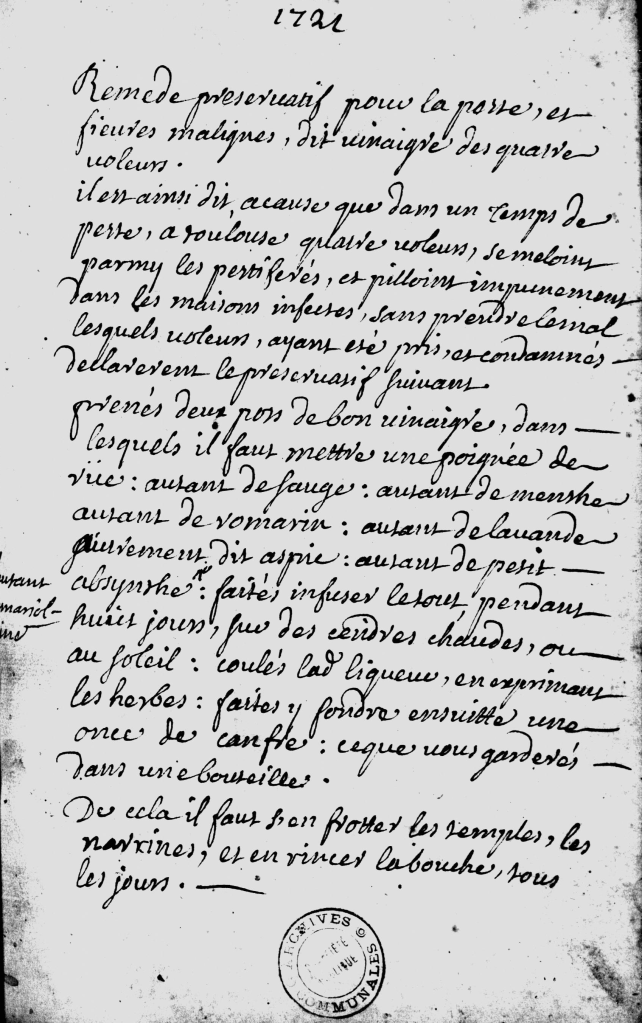 1721
Remede preservatif pour la peste, et
fievres malignes, dit vinaigre des quatre
voleurs.
il est ainsi dit, acause que dans un temps de
peste, a toulouse quatre voleurs, se meloint
parmy les pestiferés, et pilloint impunement
dans les maisons infectes, sans prendre le mal
lesquels voleurs, ayant eté pris, et condamnés —
dellarerent le preservatif suivant.
prenés deux pots de bon vinaigre, dans —
lesquels il faut mettre une poignée de
rüe : autant de sauge : autant de menthe
autant de romarin : autant de lavande
autrement dit aspic : autant de petit —
absynthe : faités infuser le tout, pendant
autant
marjol-
ine
huict jours, sur des cendres chaudes, ou —
au soleil : coulés lad liqueur, en exprimant
les herbes : faites y fondre ensuitte une
once de canfre : ce que vous garderés —
dans une bouteille.
De cela il faut s'en frotter les temples, les
narrines, et en rincer la bouche, tous
les jours. —
ARCHIVES
COMMUNALES